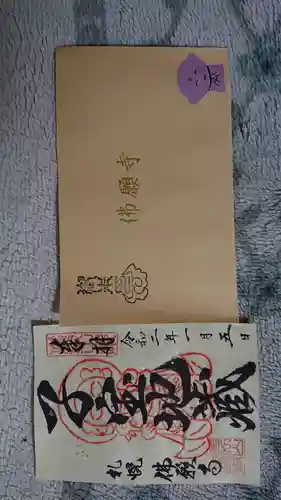 佛願寺
奉拝
令和二年一月五日
子宝地蔵
札幌 佛願寺